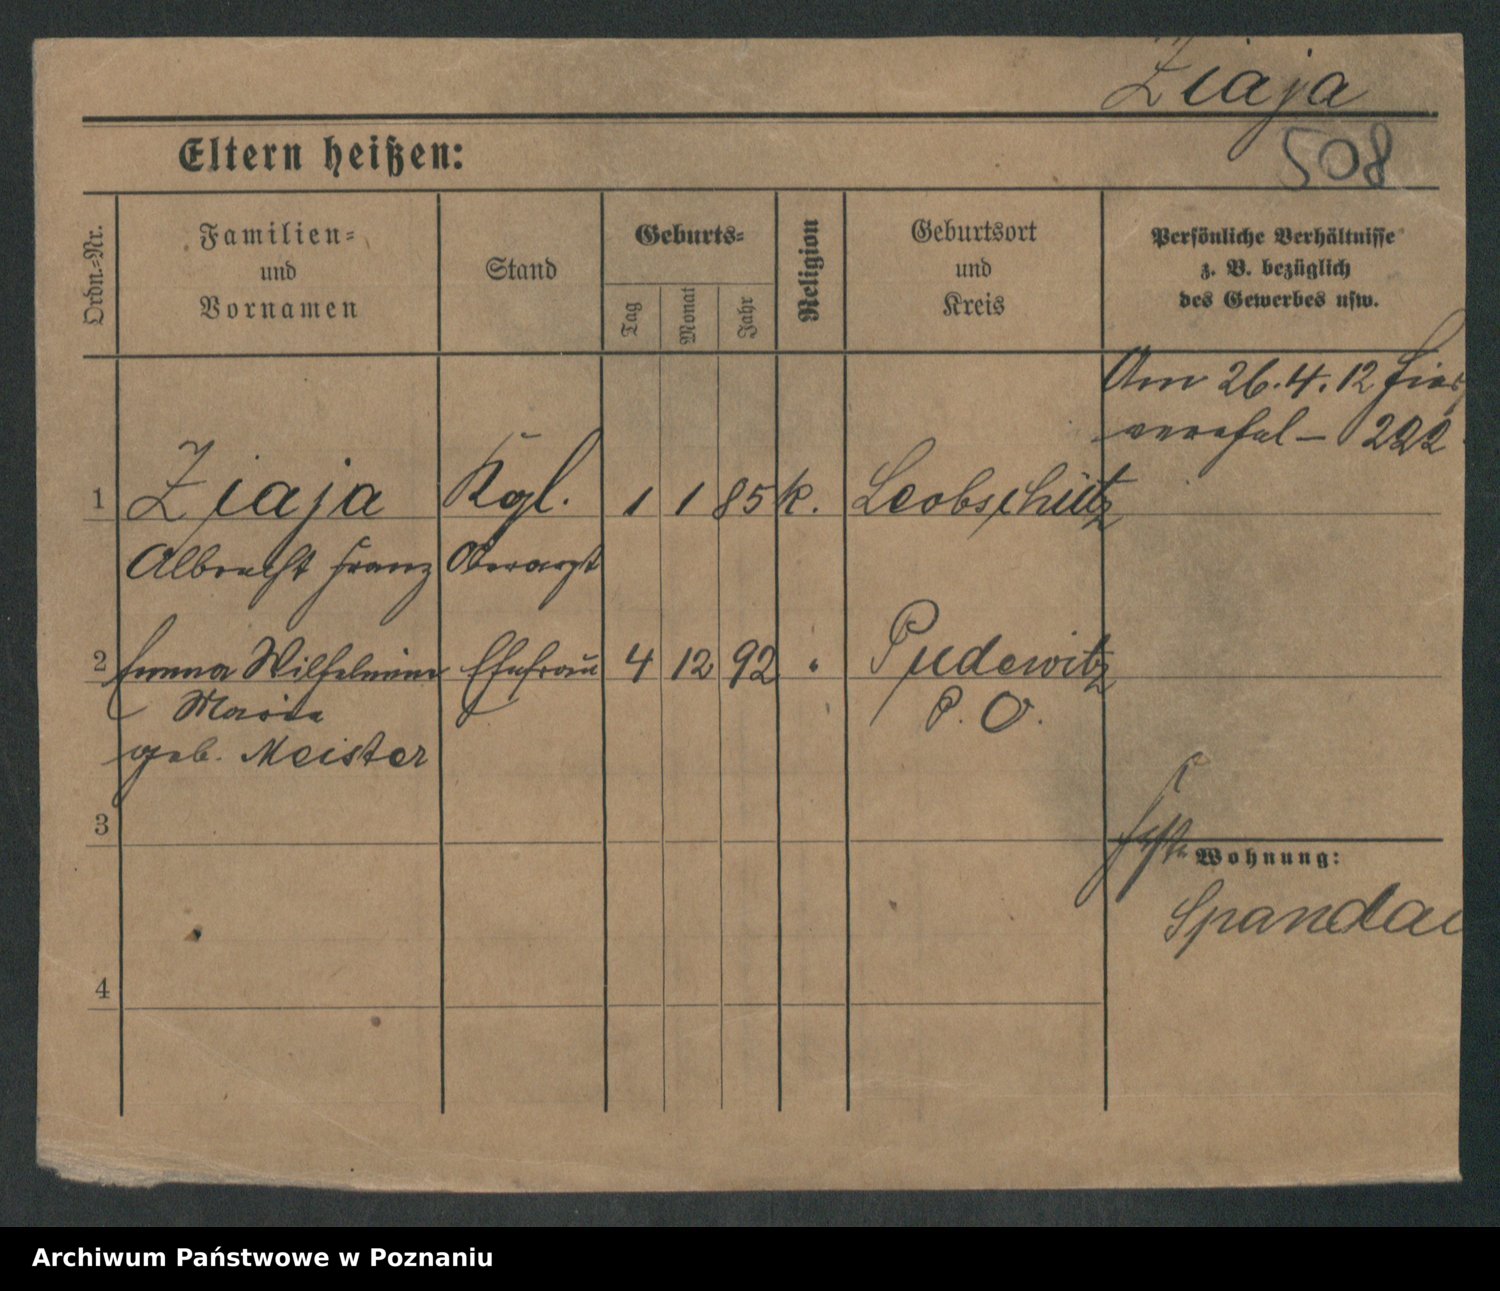 Ziaja
508
Eltern heißen:
Ordn.-Nr.
Familien-
und
Vornamen
Stand
Geburts-
Tag
Monat
Jahr
Religion
Geburtsort
und
Kreis
Persönliche Verhältnisse
z. B. bezüglich
des Gewerbes usw.
Am 26.4.12 hier
verehel – 222
1 Ziaja Kgl. 1 1 85 k. Leobschütz
Albrecht Franz Oberarzt
2 Emma Wilhelmine Ehefrau 4 12 92 " Pudewitz
Maria P. O.
geb. Meister
3
Wohnung:
Spandau
4
Archiwum Państwowe w Poznaniu